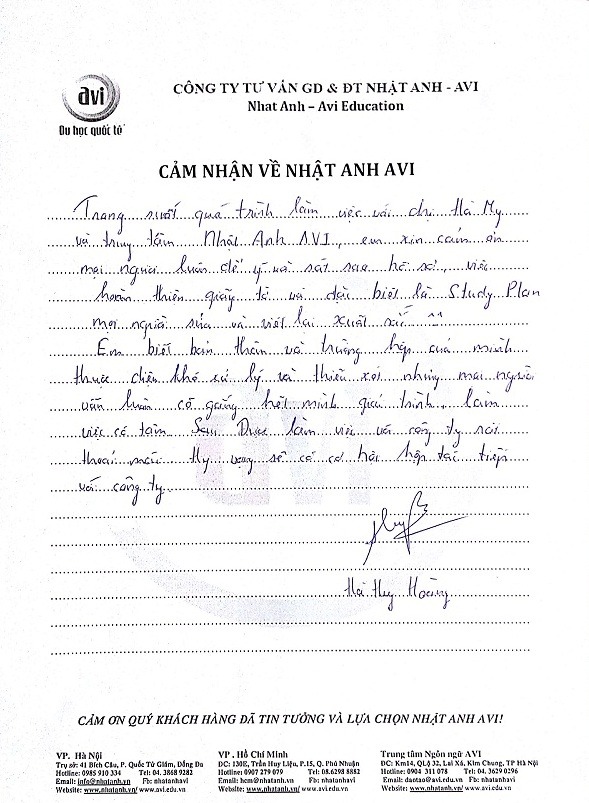 avi
Du học quốc tế
CÔNG TY TƯ VẤN GD & ĐT NHẬT ANH - AVI
Nhat Anh – Avi Education
CẢM NHẬN VỀ NHẬT ANH AVI
Trong suốt quá trình làm việc với chị Hà My
và trung tâm Nhật Anh AVI, em xin cảm ơn
mọi người luôn để ý và sát sao hồ sơ, việc
hoàn thiện giấy tờ và đặc biệt là Study Plan
mọi người sửa và viết lại xuất sắc ^^
Em biết bản thân và trường hợp của mình
thuộc diện khó xử lý và thiếu xót nhưng mọi người
vẫn luôn cố gắng hết mình quá trình làm
việc có tâm. Được làm việc với công ty rất
thoải mái. Hy vọng sẽ có cơ hội hợp tác tiếp
với công ty.
Hà Huy Hoàng
CẢM ƠN QUÝ KHÁCH HÀNG ĐÃ TIN TƯỞNG VÀ LỰA CHỌN NHẬT ANH AVI!
VP. Hà Nội
Trụ sở: 41 Bích Câu, P. Quốc Tử Giám, Đống Đa
Hotline: 0985 910 334 Tel: 04. 3868 9282
Email: info@nhatanh.vn Fb: nhatanhavi
Website: www.nhatanh.vn/ www.avi.edu.vn
VP . Hồ Chí Minh
ĐC: 130E, Trần Huy Liệu, P.15, Q. Phú Nhuận
Hotline: 0907 279 079 Tel: 08.6298 8882
Email: hcm@nhatanh.vn Fb: nhatanhavi
Website: www.nhatanh.vn/ www.avi.edu.vn
Trung tâm Ngôn ngữ AVI
ĐC: Km14, QL32, Lai Xá, Kim Chung, TP Hà Nội
Hotline: 0904 311 078 Tel: 04. 3629 0296
Email: daotao@avi.edu.vn Fb: nhatanhavi
Website: www.nhatanh.vn/ www.avi.edu.vn